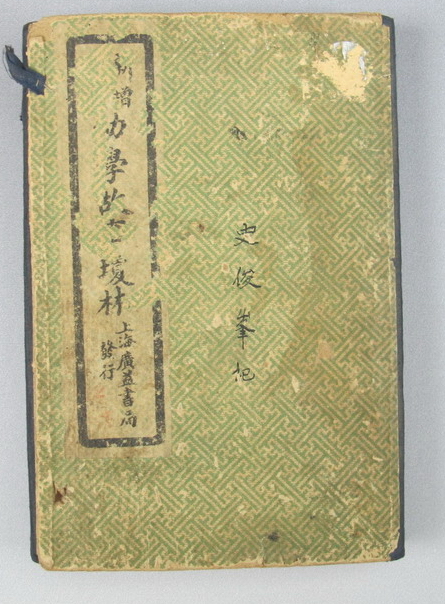 新增幼學故事瓊林
上海廣益書局
發行
史俊峯记